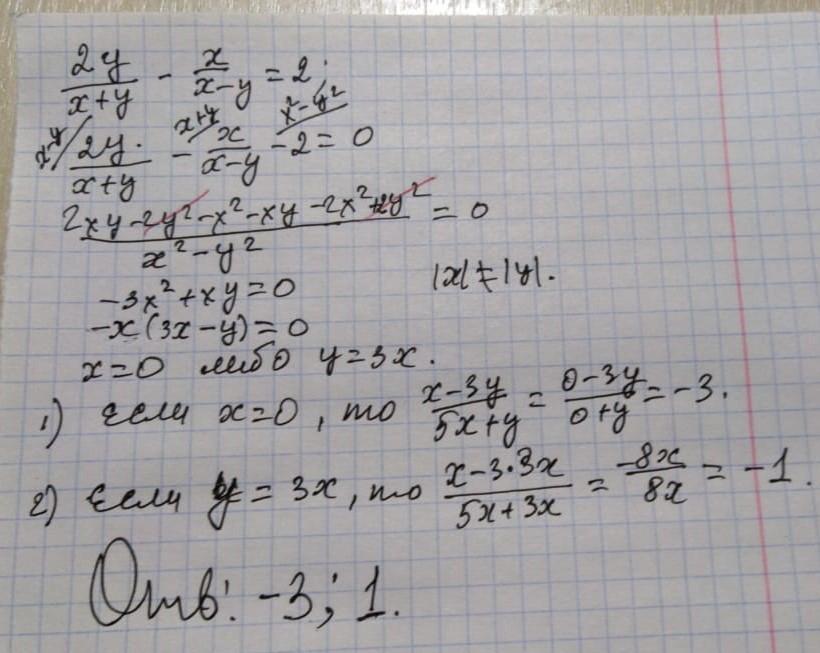 2y/(x+y) - x/(x-y) = 2;
x-y/ 2y/(x+y) - x+y/ x/(x-y) - x²-y²/ 2 = 0
(2xy-2y²-x²-xy-2x²+2y²)/(x²-y²) = 0
|x|≠|y|.
-3x²+xy=0
-x(3x-y)=0
x=0 либо y=3x.
1) Если x=0, то (x-3y)/(5x+y) = (0-3y)/(0+y) = -3.
2) Если y=3x, то (x-3·3x)/(5x+3x) = -8x/8x = -1.
Отв: -3; 1.